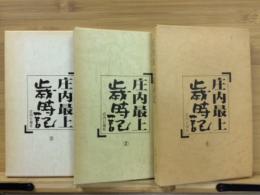 庄内最上
歳時記
③
庄内最上
歳時記
②
庄内最上
歳時記